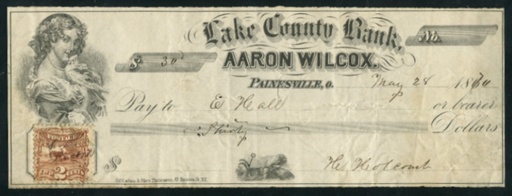 Lake County Bank,
No.
$ 30
AARON WILCOX.
PAINESVILLE, O. May 28 1870
Pay to E Hall or bearer
Thirty Dollars
$
H. Holcomb